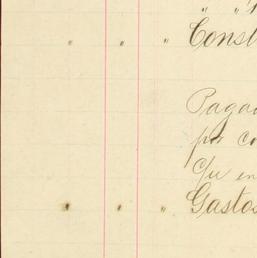 " "
" " " Const
Paga
por co
c/u en
" " " Gastos